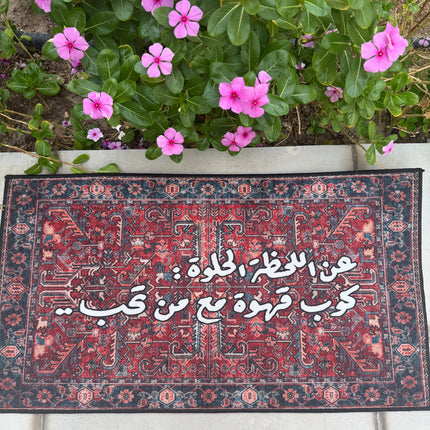 عن اللحظة الحلوة :
كوب قهوة مع من تحب ..